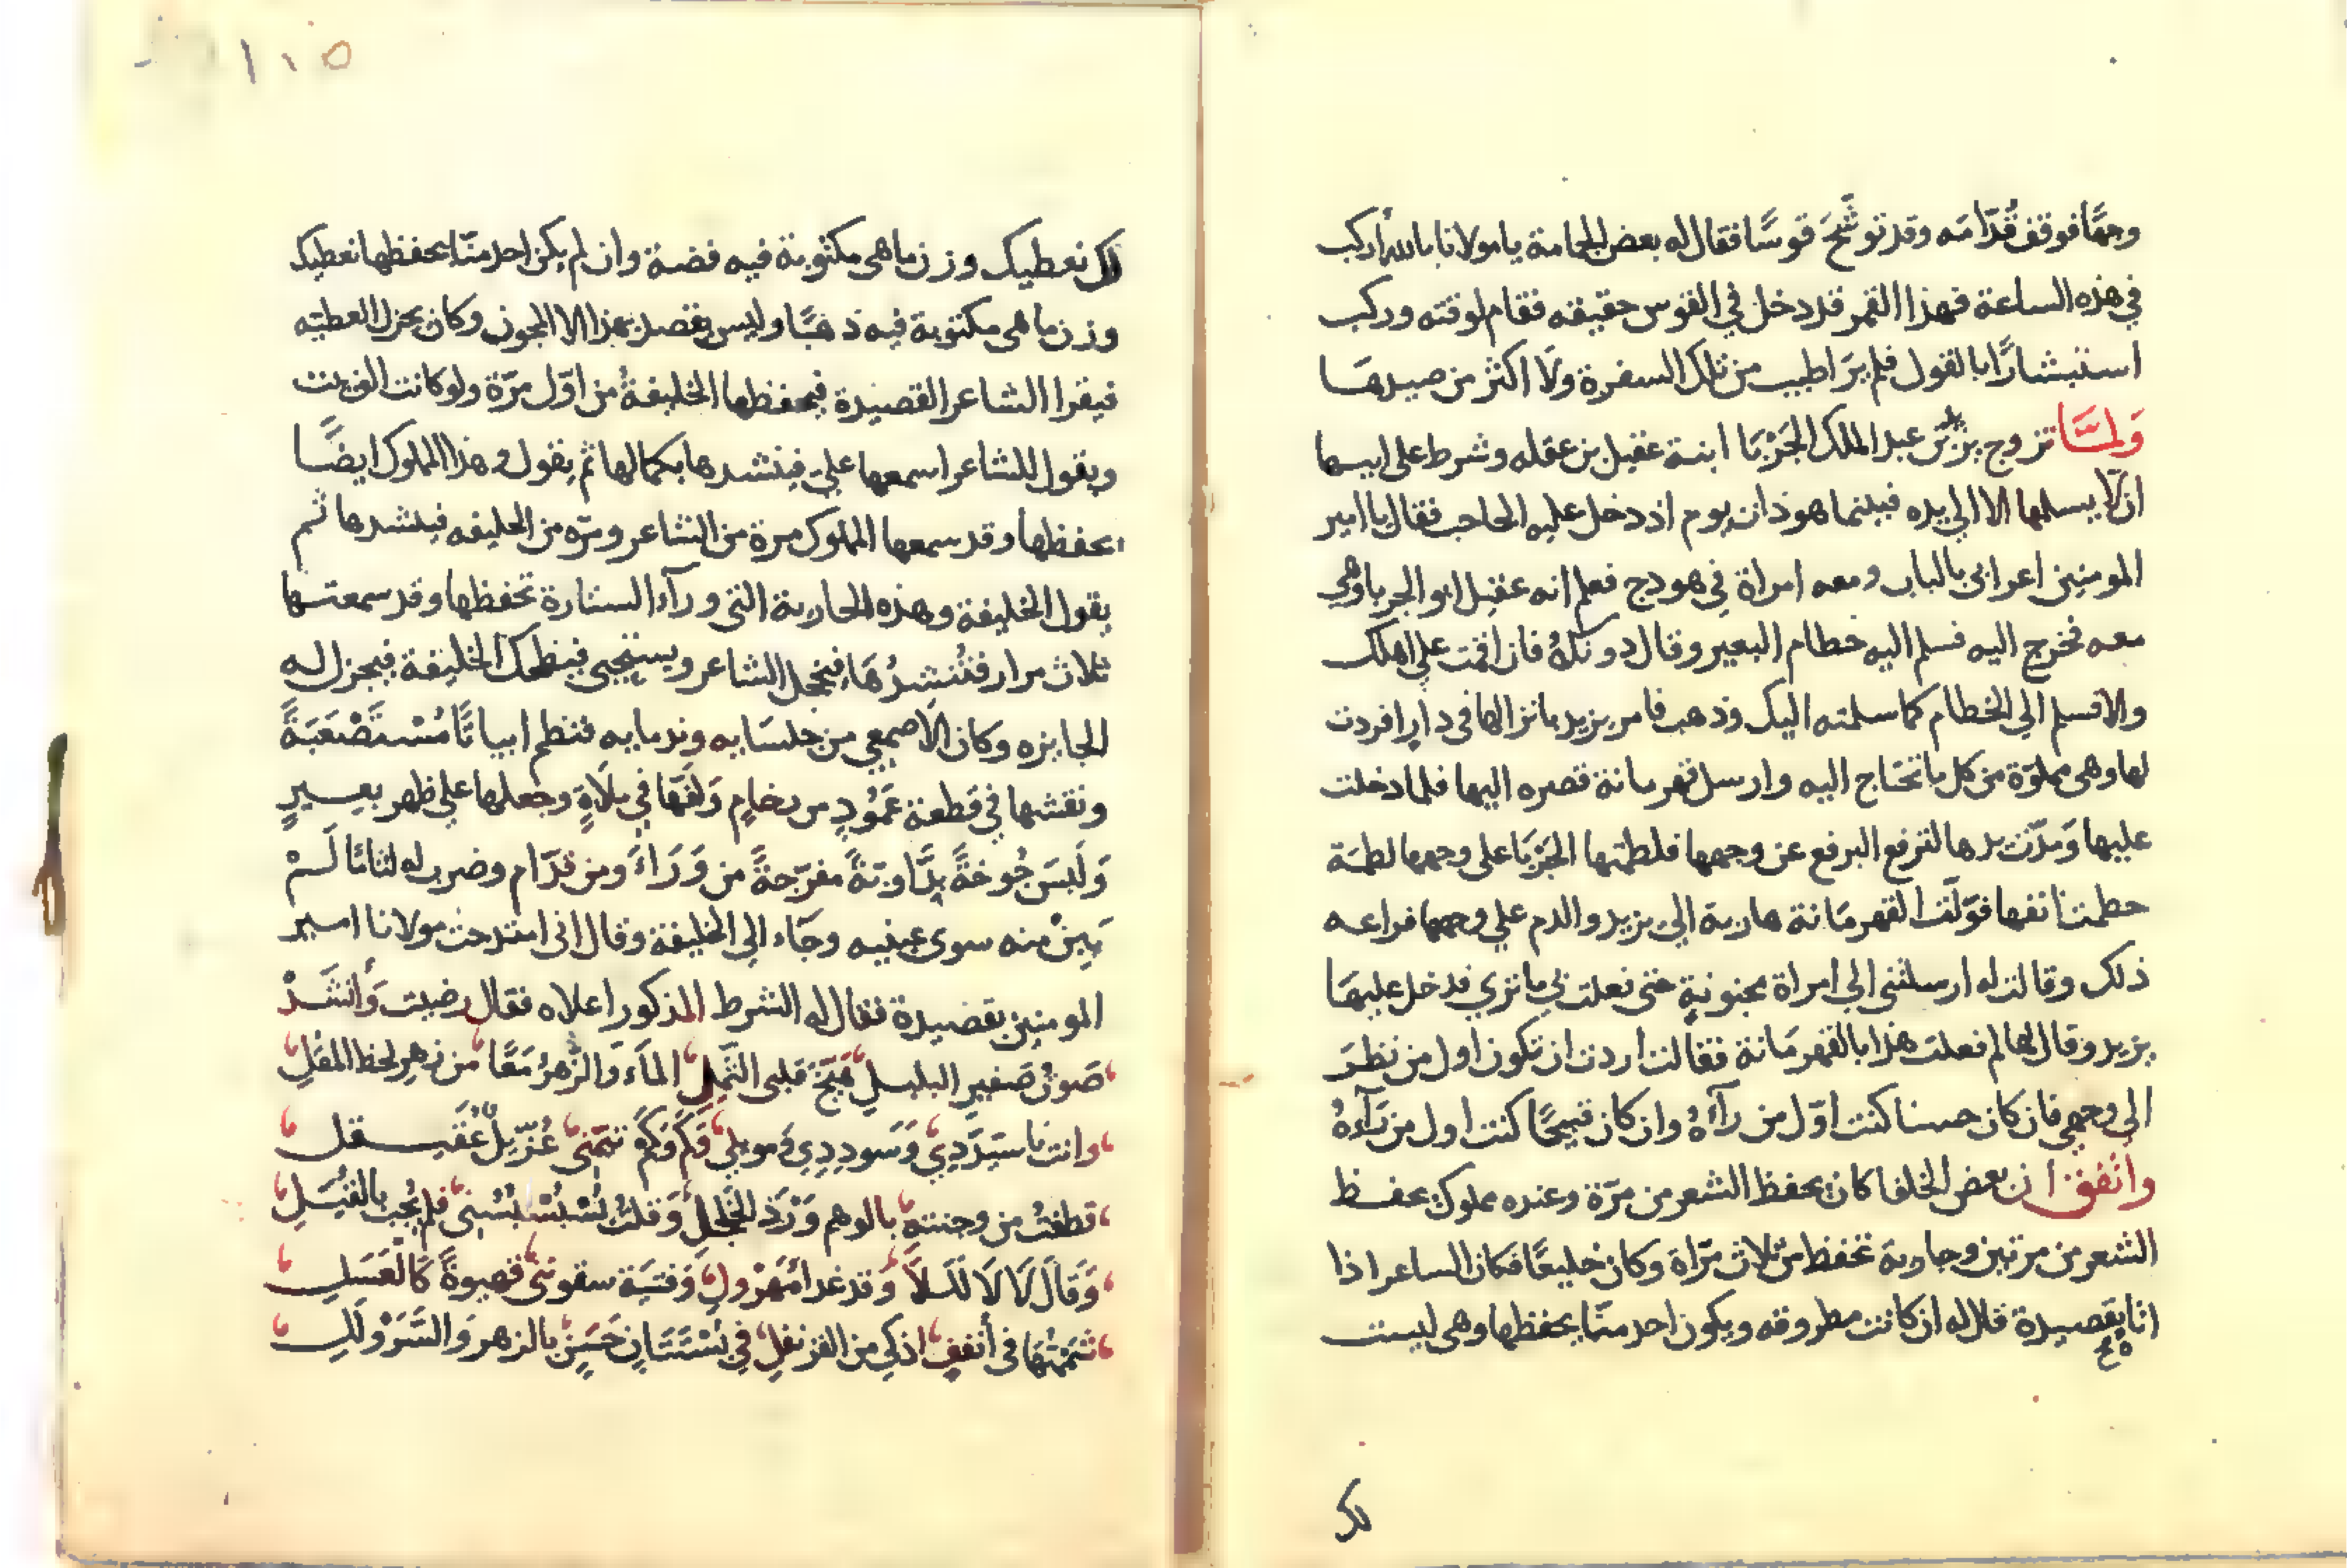 وجهًا فوقف قُدّامَه وقد توشَّحَ قوسًا فقال له بعض الجامة يا مولانا بالله أركب
في هذه الساعة فهذا القمر قد دخل في القوس حقيقه فقام لوقته وركب
استبشارًا بالقول فلم يرَ اطيب من تلك السفرة ولَا اكثر من صيدهَا
وَلمـَّا تزوج يزيد بن عبد الملك الجَرْبَا ابنة عقيل بن عقله وشرط على ابيها
ان لّا يسلمها الا الي يده فبينما هو ذات يوم اذ دخل عليه الحاجب فقال يا امير
المومنين اعرابى بالباب ومعه امراة في هودج فعلم انه عقيل ابو الجربا وهي
معه فخرج اليه فسلم اليه خطام البعير وقال دونكهُ فان اقمت علي اهلك
والا فسلم الي الخطام كما سلمته اليك وذهب فامر يزيد بانزالها في دارٍ افردت
لها وهى مملوّة من كل ما تحتاج اليه وارسل قهرمانة قصره اليها فلما دخلت
عليها وَمدّت يدها لترفع البرقع عن وجهها فلطمتها الجَرْبَا على وجهها لطمَة
حطمت انفها فوَلّت القهرمَانة هاربة إلي يزيد والدم علي وجهها فراعه
ذلك وقالت له ارسلتنى الي امراة مجنونةٍ حتى فعلت بي ما تري فدخل عليهَا
يزيد وقال لها لم فعلت هذا بالقهرمَانة فقالت أردت ان تكون اول من نظرَ
الي وجهي فان كان حسنا كنت اوّل من رآهُ وان كان قبيحًا كنت اول من رَآهُ
واتفق ان بعض الخلفا كان يحفظ الشعر من مرّة وعنده مملوك يحفظ
الشعر من مرتين وجارية تحفظ من ثلاث مرّاة وكان خليعًا فكان الساعر اذا
اتا بقصيدة قال له ان كانت مطروقه ويكون احد منّا يحفظها وهى ليست
لك
١١٥
لك نعطيك وزن ما هى مكتوبة فيه فضة وان لم يكن احد منّا يحفظها نعطيك
وزن ما هى مكتوبة فيه ذهبًا وليس يقصد بهذا الا المجون وكان يجزل العطيّه
فيقرا الشاعر القصيدة فيحفظها الخليفةُ من اوّل مرّة ولو كانت الف بيت
ويقول للشاعر اسمعها عليّ فينشدها بكمالها ثم يقول وهذا المملوك ايضًا
يحفظها وقد سمعها المملوك مرة من الشاعر ومرّه من الخليفه فينشدها ثم
يقول الخليفة وهذه الجارية التى ورآء الستارة تحفظها وقد سمعتها
ثلاث مرار فتُنشِدُهَا فيخجل الشاعر ويستحيى فيضحك الخليفة فيجزل له
الجايزه وكان الاصمعي من جلسَايه وندمايه فنظم ابياتًا مُسْتَصْعَبَةً
ونقشها في قطعة عَمُودٍ من رخامٍ وَلفّهَا في مِلَاةٍ وجعلها علي ظهر بعيرٍ
وَلبَسَ جُوخةً بدَّاويّةً مفرّجةً من وَرَاءَ ومن قدّام وضرب له لثامًا لَمْ
يَبِينْ منه سوى عينيه وجَاء الي الخليفة وقال انى امتدحت مولانا امير
المومنين بقصيدة فقال له الشرط المذكور اعلاه فقال رضيت وَأنشَدْ
صَوتُ صَفيرِ البلبلِ هَيّجَ قلبى الثَّمِلِ الماَءَ وَالزّهرُ مَعًا من زهرِ لحظ المقَلِ
وانت يا سيّدَدِيْ وَسَودِدِي وَمويلي فكَم فكَم تيّمَنى عُزَيّلٌ عُقَيـقل
قطفتُ من وجنته بالوهم وَرْدَ الخجلِ وَقلتُ بُسْبُسْبُسْنى فلم يُجب بالقُبَلِ
وَقَالَ لَا لَا لَلَلاَ وَقد غدا مُهَرْوِلِ وَفتيَة سقونَنى قهيوةً كَالْعَسَلِ
شَمَمْتُهَا في أنفِيِ اذكي من القرنفلِ في بُسْتَتَانٍ حَسَنٍ بالزهر وَالسَّرَوْلَلِ